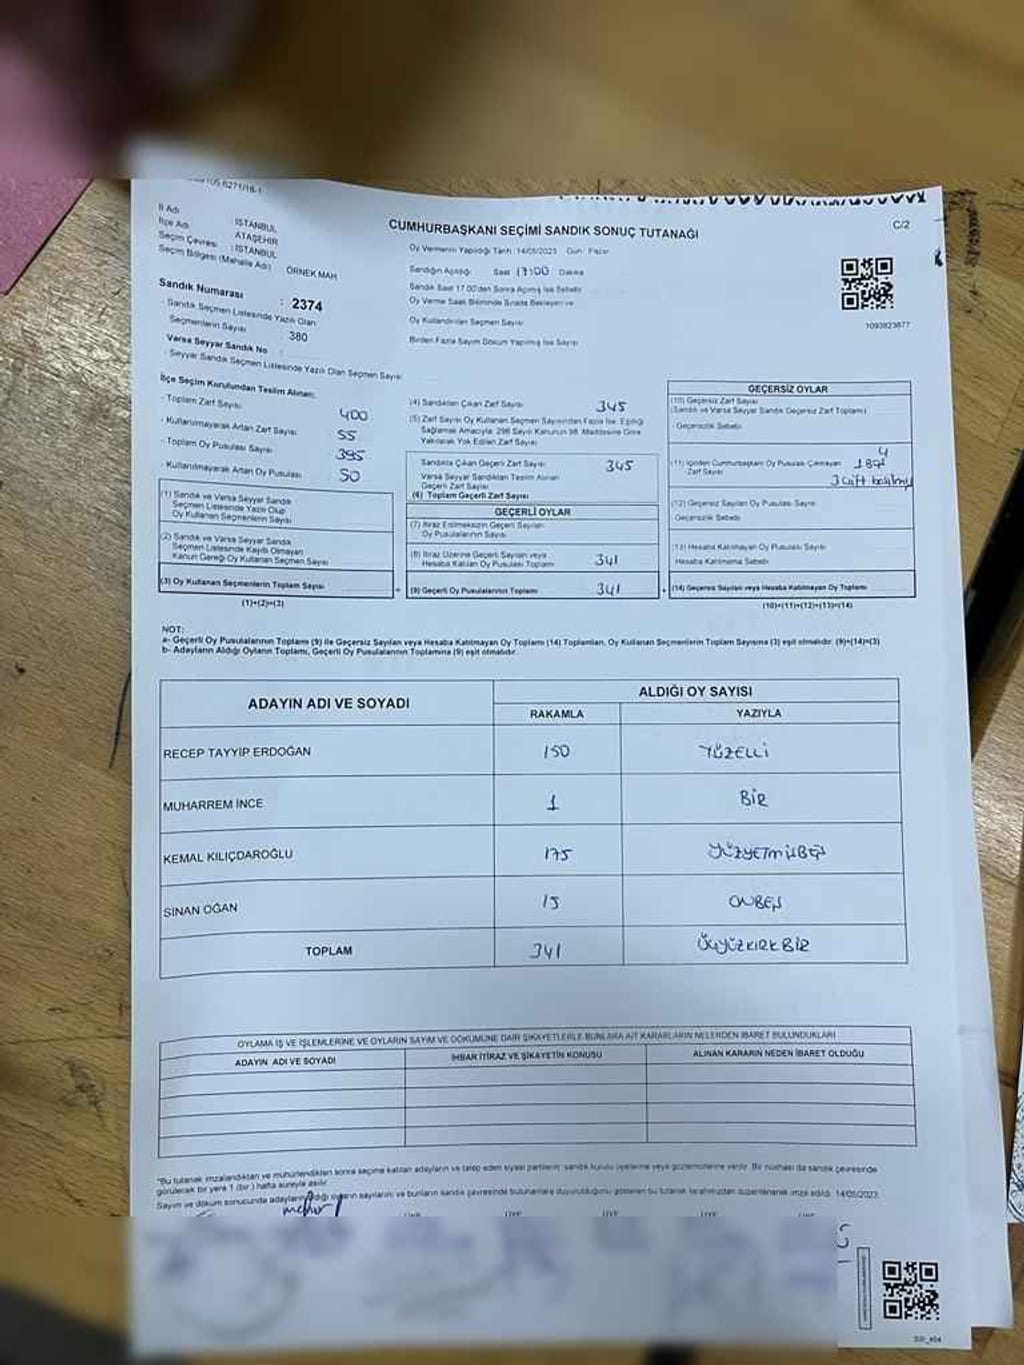 105 6271/18-1
İl Adı
İlçe Adı
Seçim Çevresi
Seçim Bölgesi (Mahalle Adı)
İSTANBUL
ATAŞEHİR
: İSTANBUL
ÖRNEK MAH
CUMHURBAŞKANI SEÇİMİ SANDIK SONUÇ TUTANAĞI
C/2
Oy Vermenin Yapıldığı Tarih : 14/05/2023 Gün : Pazar
Sandığın Açıldığı Saat 17:00 Dakika
Sandık Saat 17.00'den Sonra Açılmış İse Sebebi
Oy Verme Saati Bitiminde Sırada Bekleyen ve
Oy Kullandırılan Seçmen Sayısı
Birden Fazla Sayım Döküm Yapılmış İse Sayısı
1093823877
Sandık Numarası : 2374
Sandık Seçmen Listesinde Yazılı Olan
Seçmenlerin Sayısı : 380
Varsa Seyyar Sandık No :
- Seyyar Sandık Seçmen Listesinde Yazılı Olan Seçmen Sayısı:
İlçe Seçim Kurulundan Teslim Alınan;
- Toplam Zarf Sayısı 400
- Kullanılmayarak Artan Zarf Sayısı 55
- Toplam Oy Pusulası Sayısı 395
- Kullanılmayarak Artan Oy Pusulası 50
(1) Sandık ve Varsa Seyyar Sandık
Seçmen Listesinde Yazılı Olup
Oy Kullanan Seçmenlerin Sayısı
(2) Sandık ve Varsa Seyyar Sandık
Seçmen Listesinde Kayıtlı Olmayan
Kanun Gereği Oy Kullanan Seçmen Sayısı
(3) Oy Kullanan Seçmenlerin Toplam Sayısı
(1)+(2)=(3)
(4) Sandıktan Çıkan Zarf Sayısı 345
(5) Zarf Sayısı Oy Kullanan Seçmen Sayısından Fazla İse, Eşitliği
Sağlamak Amacıyla; 298 Sayılı Kanunun 98. Maddesine Göre
Yakılarak Yok Edilen Zarf Sayısı
Sandıkta Çıkan Geçerli Zarf Sayısı 345
Varsa Seyyar Sandıktan Teslim Alınan
Geçerli Zarf Sayısı
(6) Toplam Geçerli Zarf Sayısı
GEÇERLİ OYLAR
(7) İtiraz Edilmeksizin Geçerli Sayılan
Oy Pusulalarının Sayısı
(8) İtiraz Üzerine Geçerli Sayılan veya
Hesaba Katılan Oy Pusulası Toplamı 341
(9) Geçerli Oy Pusulalarının Toplamı 341
GEÇERSİZ OYLAR
(10) Geçersiz Zarf Sayısı
(Sandık ve Varsa Seyyar Sandık Geçersiz Zarf Toplamı)
- Geçersizlik Sebebi
4
(11) İçinden Cumhurbaşkanı Oy Pusulası Çıkmayan
Zarf Sayısı
(12) Geçersiz Sayılan Oy Pusulası Sayısı
Geçersizlik Sebebi
(13) Hesaba Katılmayan Oy Pusulası Sayısı
Hesaba Katılmama Sebebi
(14) Geçersiz Sayılan veya Hesaba Katılmayan Oy Toplamı
(10)+(11)+(12)+(13)=(14)
NOT:
a- Geçerli Oy Pusulalarının Toplamı (9) ile Geçersiz Sayılan veya Hesaba Katılmayan Oy Toplamı (14) Toplamları, Oy Kullanan Seçmenlerin Toplam Sayısına (3) eşit olmalıdır. (9)+(14)=(3)
b- Adayların Aldığı Oyların Toplamı, Geçerli Oy Pusulalarının Toplamına (9) eşit olmalıdır.
ADAYIN ADI VE SOYADI
ALDIĞI OY SAYISI
RAKAMLA YAZIYLA
RECEP TAYYIP ERDOĞAN 150 YÜZELLİ
MUHARREM İNCE 1 BİR
KEMAL KILIÇDAROĞLU 175 YÜZYETMİŞBEŞ
SİNAN OĞAN 15 ONBEŞ
TOPLAM 341 ÜÇYÜZKIRKBİR
OYLAMA İŞ VE İŞLEMLERİNE VE OYLARIN SAYIM VE DÖKÜMÜNE DAİR ŞİKAYETLERLE BUNLARA AİT KARARLARIN NELERDEN İBARET BULUNDUKLARI
ADAYIN ADI VE SOYADI
İHBAR İTİRAZ VE ŞİKAYETİN KONUSU
ALINAN KARARIN NEDEN İBARET OLDUĞU
"Bu tutanak imzalandıktan ve mühürlendikten sonra seçime katılan adayların ve talep eden siyasi partilerin sandık kurulu üyelerine veya gözlemcilerine verilir. Bir nüshası da sandık çevresinde
görülecek bir yere 1 (bir) hafta süreyle asılır.
Sayım ve döküm sonucunda adayların aldığı oyların sayılarını ve bunların sandık çevresinde bulunanlara duyurulduğunu gösteren bu tutanak tarafımızdan düzenlenerek imza edildi. 14/05/2023